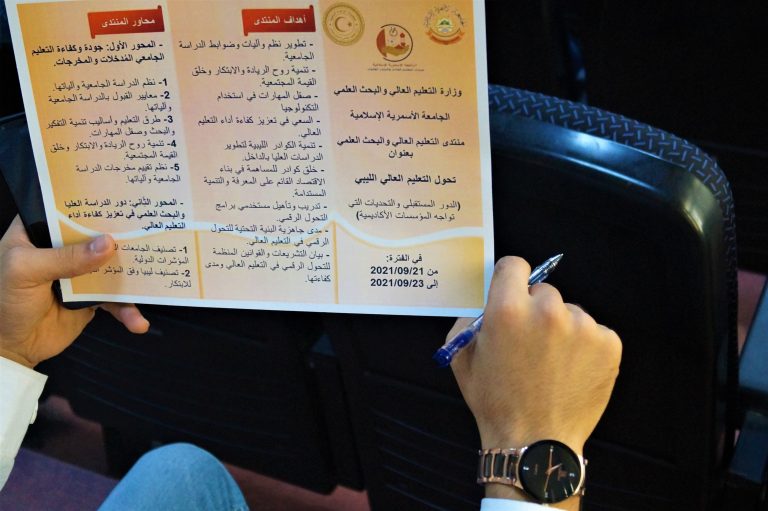 وزارة التعليم العالي والبحث العلمي
الجامعة الأسمرية الإسلامية
منتدى التعليم العالي والبحث العلمي
بعنوان
تحول التعليم العالي الليبي
(الدور المستقبلي والتحديات التي
تواجه المؤسسات الأكاديمية)
في الفترة:
من 2021/09/21
إلى 2021/09/23
أهداف المنتدى
- تطوير نظم وآليات وضوابط الدراسة
الجامعية.
- تنمية روح الريادة والابتكار وخلق
القيمة المجتمعية.
- صقل المهارات في استخدام
التكنولوجيا
- السعي في تعزيز كفاءة أداء التعليم
العالي.
- تنمية الكوادر الليبية لتطوير
الدراسات العليا بالداخل.
- خلق كوادر للمساهمة في بناء
الاقتصاد القائم على المعرفة والتنمية
المستدامة.
- تدريب وتأهيل مستخدمي برامج
التحول الرقمي.
- مدى جاهزية البنية التحتية للتحول
الرقمي في التعليم العالي.
- بيان التشريعات والقوانين المنظمة
للتحول الرقمي في التعليم العالي ومدى
كفاءتها.
محاور المنتدى
- المحور الأول: جودة وكفاءة التعليم
الجامعي المدخلات والمخرجات.
1- نظم الدراسة الجامعية وآلياتها.
2- معايير القبول بالدراسة الجامعية
وآلياتها.
3- طرق التعليم وأساليب تنمية التفكير
والبحث وصقل المهارات.
4- تنمية روح الريادة والابتكار وخلق
القيمة المجتمعية.
5- نظم تقييم مخرجات الدراسة
الجامعية وآلياتها.
- المحور الثاني: دور الدراسة العليا
والبحث العلمي في تعزيز كفاءة أداء
التعليم العالي.
1- تصنيف الجامعات
المؤشرات الدولية.
2- تصنيف ليبيا وفق المؤشر
للابتكار.